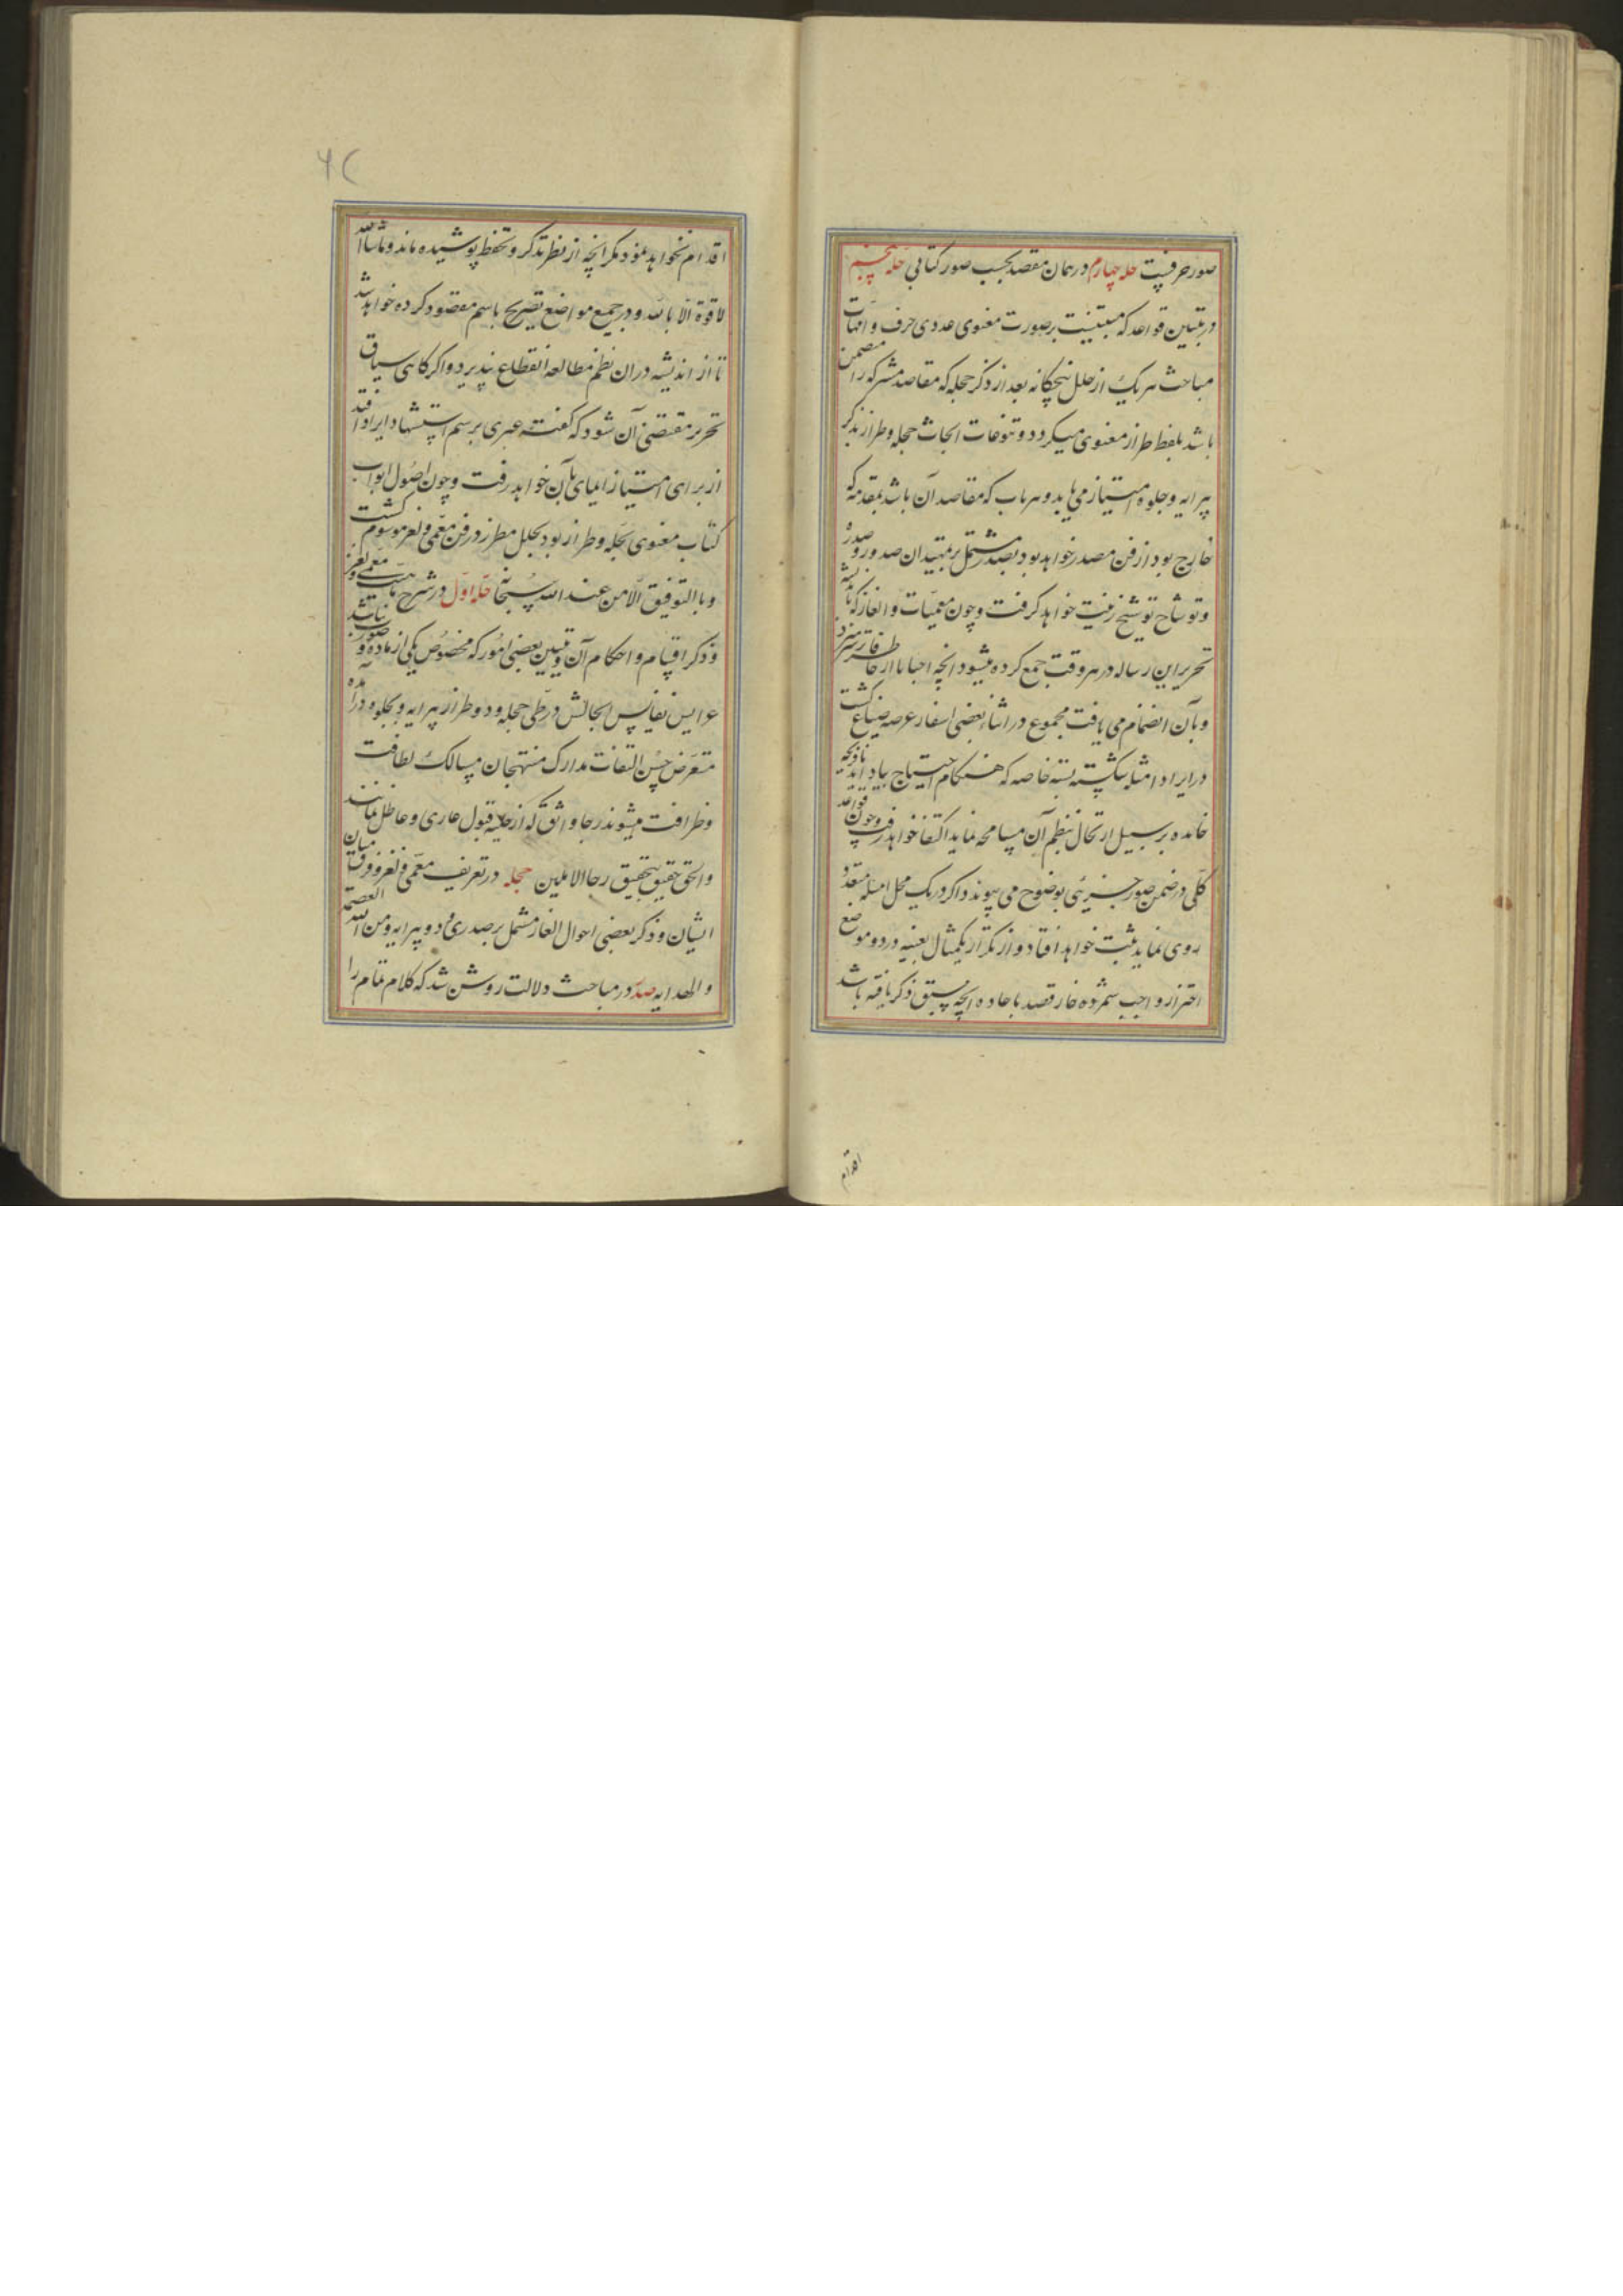 صور حرفیست حله چهارم در همان مقصد بحسب صور کتابی حله پنجم
در تبیین قواعد که مبتنیست بر صورت معنوی عددی حرف و امهات
مباحث هر یک از حلل پنجگانه بعد از ذکر حجله که مقاصد مشترکه را متضمن
باشد بلفظ طراز معنوی میکردد و تنوعات ابحاث حجله و طراز بذکر
پیرایه و جلوه امتیاز می یابد و هر باب که مقاصد آن باشد بمقدمه که
خارج بود از فن مصدر خواهد بود بصدر مشتمل بر تمهیدان صدور و صدره
و توشاح توشیح زینت خواهد کرفت و چون معمیات و الغاز که
تحریر این رساله در هر وقت جمع کرده میشود انچه احیانا از خاطر فاتر سر میزد
و بآن انضمام می یافت مجموع در اثناء بعضی اسفار عرصه ضیاع کشت
در ایراد امثله شکسته بسته خاصه که هنکام احتیاج بیاد آید یا آنچه
خامه بر سبیل ارتجال بنظم آن مسامحه نماید اکتفا خواهد رفت و چون قواعد
کلی در ضمن صور جزئی بوضوح می پیوندد اکر در یک محل امثله متعدد
روی نماید ثبت خواهد افتاد و از تکرار یکمثال بعینه در دو موضع
احتراز واجب شمرده خار قصد باعاده انچه سبق ذکر یافته باشد
اقدام
اقدام نخواهد نمود مکر انچه از نظر تذکر و تحفظ پوشیده ماند و ماشاالله
لا قوة الا بالله و در جمیع مواضع تصریح باسم مقصود کرده خواهد شد
تا از اندیشه در ان نظم مطالعه انقطاع نپذیرد و اکر کاهی سیاق
تحریر مقتضی آن شود که کفته غیری برسم استشهاد ایراد افتد
از برای امتیاز ایمای بآن خواهد رفت و چون اصول ابواب
کتاب معنوی بحله و طراز بود بحلل مطرز در فن معمی و لغز موسوم کشت
و ما التوفیق الا من عند الله سبحانه حله اول در شرح ماهیت معمی و لغز
و ذکر اقسام و احکام آن و تبیین بعضی امور که مخصوص یکی از ماده و صورت نباشد
عرایس نفایس ابحاثش در طی حجله و دو طراز پیرایه و بجلوه در آمده
متعرض حسن التفات مدارک منتهجان مسالک لطافت
و ظرافت میشوند رجا واثق که از حلیه قبول عاری و عاطل نمانند
والحق حقیق بتحقیق رجا الاملین حجله در تعریف معمی و لغز و فرق میان
ایشان و ذکر بعضی احوال الغاز مشتمل بر صدری و دو پیرایه و من الله العصمة
و الهدایه صدر در مباحث دلالت روشن شد که کلام تمام را